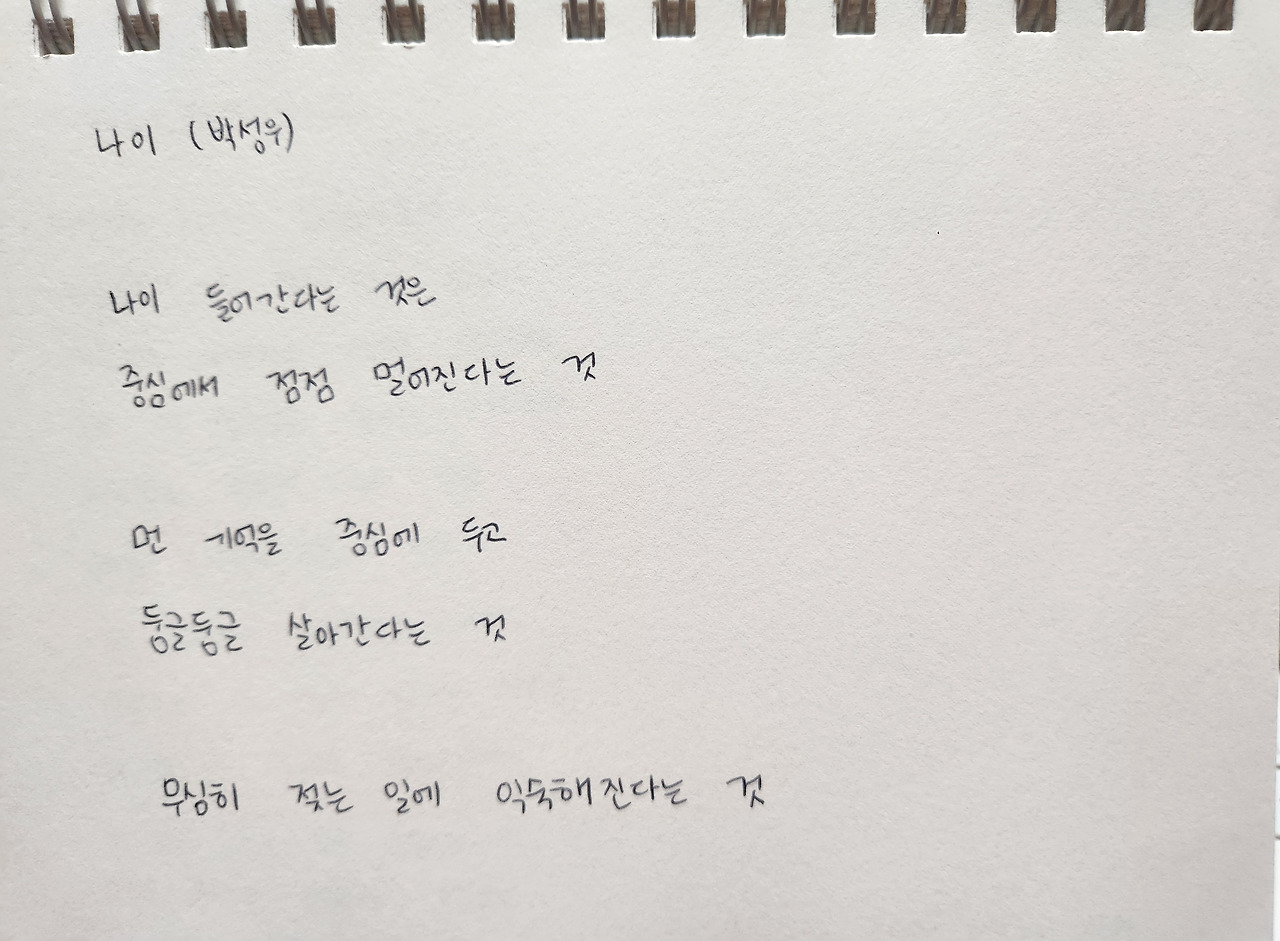 나이 (박성우)
나이 들어간다는 것은
중심에서 점점 멀어진다는 것
먼 기억을 중심에 두고
둥글둥글 살아간다는 것
무심히 젖는 일에 익숙해진다는 것